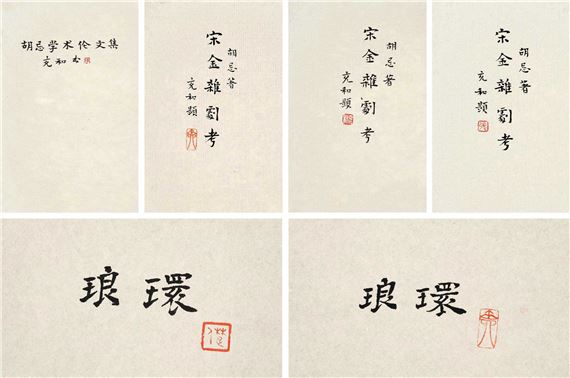 胡忌学术论文集
充和书
胡忌著
宋金雜劇考
充和題
胡忌著
宋金雜劇考
充和題
胡忌著
宋金雜劇考
充和題
琅環
琅環